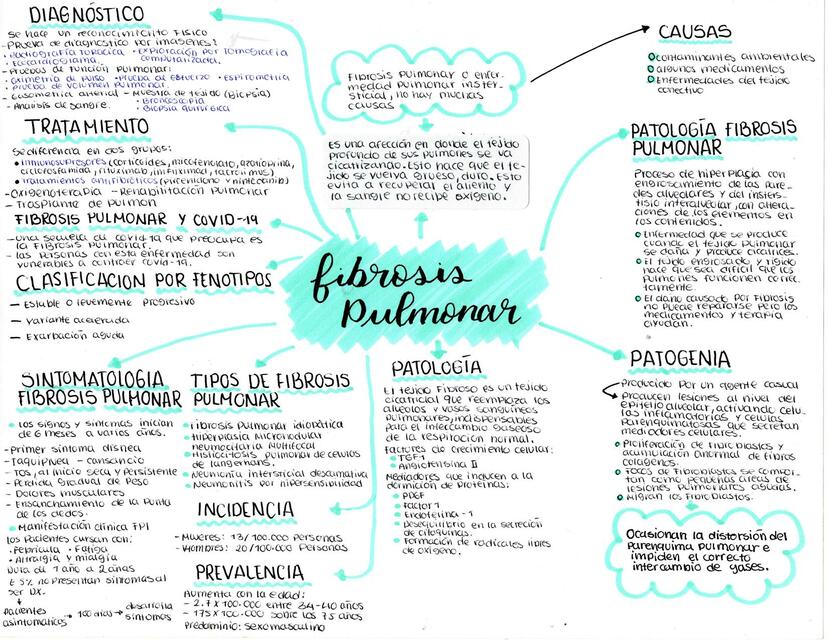 DIAGNÓSTICO
Se hace un reconocimiento físico
- Prueba de diagnóstico por imágenes:
• Radiografía torácica • Exploración por tomografía
• Ecocardiograma. computarizada.
- Pruebas de función pulmonar:
• Oximetría de pulso • Prueba de esfuerzo • Espirometría
• Prueba de volumen pulmonar.
- Gasometría arterial - Muestra de tejido (Biopsia)
- Análisis de sangre. • Broncoscopía
• Biopsia quirúrgica
TRATAMIENTO
Se diferencia en dos grupos:
• Inmunosupresores (corticoides, micofenolato, azatioprina,
ciclosfamida, rituximab, infliximab, tacrolimus)
• Tratamientos antifibróticos (pirfenidona y nintedanib)
- Oxigenoterapia - Rehabilitación Pulmonar
- Trasplante de pulmón
FIBROSIS PULMONAR Y COVID-19
- Una secuela di covid-19 que preocupa es
la Fibrosis Pulmonar.
- las personas con esta enfermedad son
vunerables a contraer covid-19.
CLASIFICACION POR FENOTIPOS
— Estable o levemente progresivo
— Variante acelerada
— Exarbación aguda
SINTOMATOLOGIA
FIBROSIS PULMONAR
• Los signos y síntomas inician
de 6 meses a varios años.
- Primer síntoma disnea
- Taquipnea - cansancio
- Tos, al inicio seca y persistente
- Pérdida gradual de peso
- Dolores musculares
- Ensanchamiento de la punta
de los dedos.
• Manifestación clínica FPI
los pacientes cursan con:
• Febrícula • Fatiga
• Artralgia y mialgia
Dura de 1 año a 2 años
5% no presentan síntomas al
ser DX.
pacientes
asintomáticos → 1000 días → desarrolla
síntomas
TIPOS DE FIBROSIS
PULMONAR
• Fibrosis Pulmonar idiopática
• Hiperplasia micronodular
neumocitaria multifocal
• Histiocitosis pulmonar de células
de langerhans.
• Neumonía intersticial descamativa
• Neumonitis por hipersensibilidad
INCIDENCIA
- Mujeres: 13/100.000 personas
- Hombres: 20/100.000 Personas
PREVALENCIA
Aumenta con la edad:
- 2.7 x 100.000 entre 34-40 años
- 175 x 100.000 sobre los 75 años
Predominio: sexo masculino
Fibrosis Pulmonar o enfer-
medad pulmonar inster-
sticial, no hay muchas
causas
Es una afección en donde el tejido
profundo de sus pulmones se va
cicatrizando. Esto hace que el te-
jido se vuelva grueso, duro. Esto
evita a recuperar el aliento y
la sangre no recibe oxígeno.
fibrosis
Pulmonar
PATOLOGÍA
El tejido Fibroso es un tejido
cicatricial que reemplaza los
alveolos y vasos sanguíneos
pulmonares, indispensables
para el intercambio gaseoso
de la respiración normal.
Factores de crecimiento celular:
• TGF1
• Angiotensina II
Mediadores que inducen a la
formación de proteínas:
• PDGF
• Factor 1
• Endotelina - 1
• Desequilibrio en la secreción
de citoquinas.
• Formación de radicales libres
de oxígeno.
CAUSAS
• Contaminantes ambientales
• Algunos medicamentos
• Enfermedades del tejido
conectivo
PATOLOGÍA FIBROSIS
PULMONAR
Proceso de hiperplasia con
engrosamiento de las pare-
des alveolares y del inters-
tisio interalveolar, con altera-
ciones de los elementos en
los contenidos.
• Enfermedad que se produce
cuando el tejido pulmonar
se daña y produce cicatrices.
• El tejido engrosado, y rígido
hace que sea difícil que los
pulmones funcionen correc-
tamente.
• El daño causado por fibrosis
no puede repararse pero los
medicamentos y terapia
ayudan.
PATOGENIA
Producido por un agente casual
Producen lesiones al nivel del
epitelio alveolar, activando célu-
las inflamatorias y células
Parenquimatosas que secretan
mediadores celulares.
• Proliferación de fibroblastos y
acumulación anormal de fibras
colágenos.
• Focos de Fibroblastos se compor-
tan como pequeñas áreas de
lesiones pulmonares agudas.
• Migran los Fibroblastos.
Ocasionan la distorsión del
Parénquima Pulmonar e
impiden el correcto
intercambio de gases.